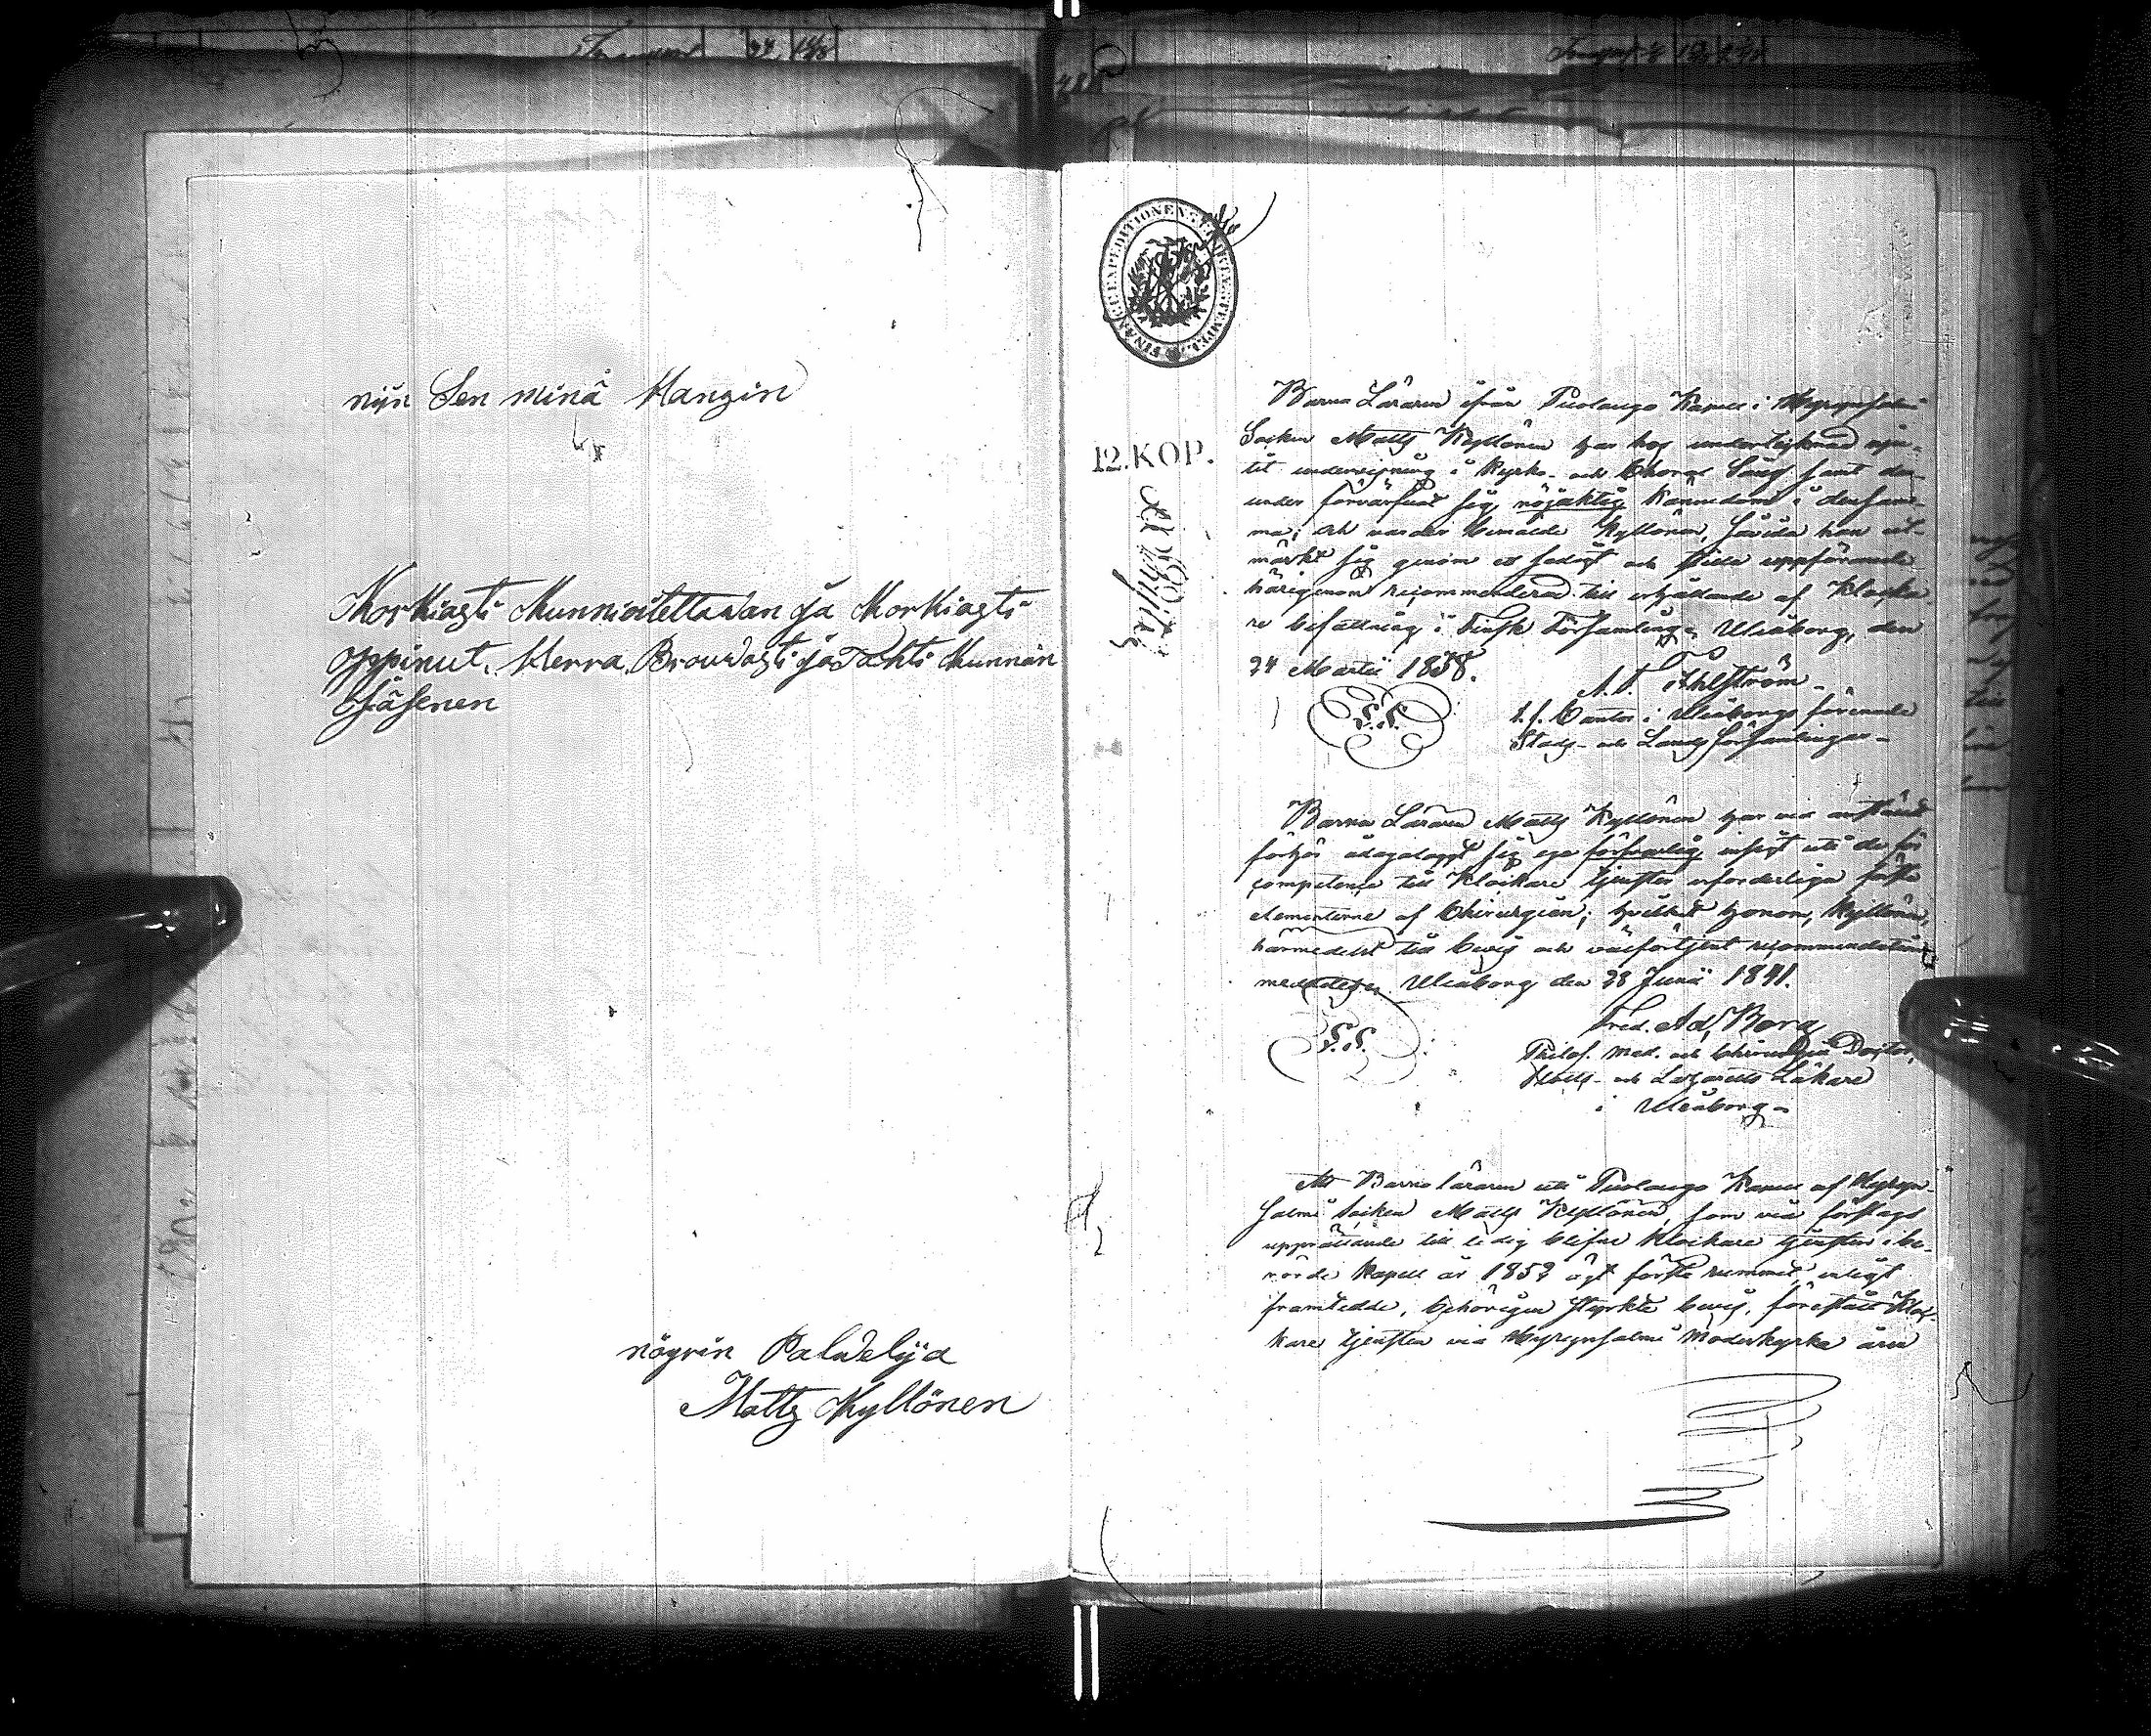 nijn Sen minä Kanzin
Korkiasti Kunnioitettawan ja Korkiasti
oppinut, Herra, Prowasti ja Tähti Kunnan
Jäsenen
nöyrin Palwelija
Matts Kyllönen
FINANCE EXPEDITIONENS
12. KOP.
Barna Läraren ifrån Puolango Kapell i Hyrynsalmi
Socken Matts Kyllönen har hos undertecknad nju-
tit underwisning i Kyrko- och Choral Sång samt der-
under förvärfvat sig nöjaktig kännedom i densam-
ma; och warder bemälde Kyllönen, såvida han ut-
märkt sig genom et sedigt och stilla uppförande
härigenom recommenderad till erhållande af Klocka-
re befattning i Finsk Församling. Uleåborg, den
24 Martii 1838.
A. F. Ahlström
L.S.
t.f. Cantor i Uleåborgs förenade
Stads- och Lands församlingar
Barna Läraren Matts Kyllönen har vid anstäldt
förhör ådagalaggt sig ega försvarlig insigt uti de för
competence till Klockare tjenster erforderliga första
elementerne af Chirurgien; hvilket honom, Kyllönen,
härmedelst till bevis och välförtjent recommendation
meddelas. Uleåborg den 28 Junii 1841.
Fred. Ad. Berg
L.S.
Philos. Med. och Chirurgiæ Doctor,
och Lazaretts Läkare
i Uleåborg
Att Barna läraren uti Puolango Kapell af Hyryn-
salmi Socken Matts Kyllönen, som vid förslags
upprättande till ledig blifne Klockare tjensten i be-
rörde Kapell år 1852 ägt första rummet, enligt
framtedde, behörigen styrkte bevis, förestått Kloc-
kare tjensten vid Hyrynsalmi Moderkyrka åren